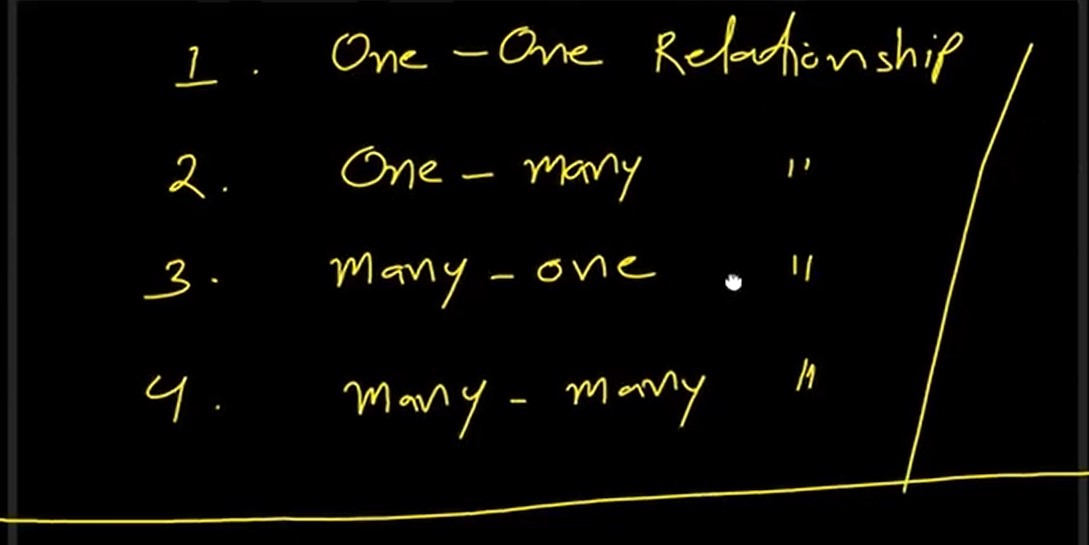 1. One - One Relationship
2. One - many "
3. Many - one "
4. Many - many "